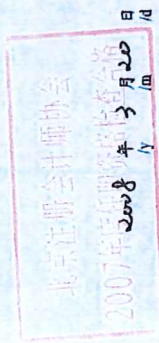 北京注册会计师协会
2007年度任职资格检查合格
2008 年 3 月 20 日
/y /m /d